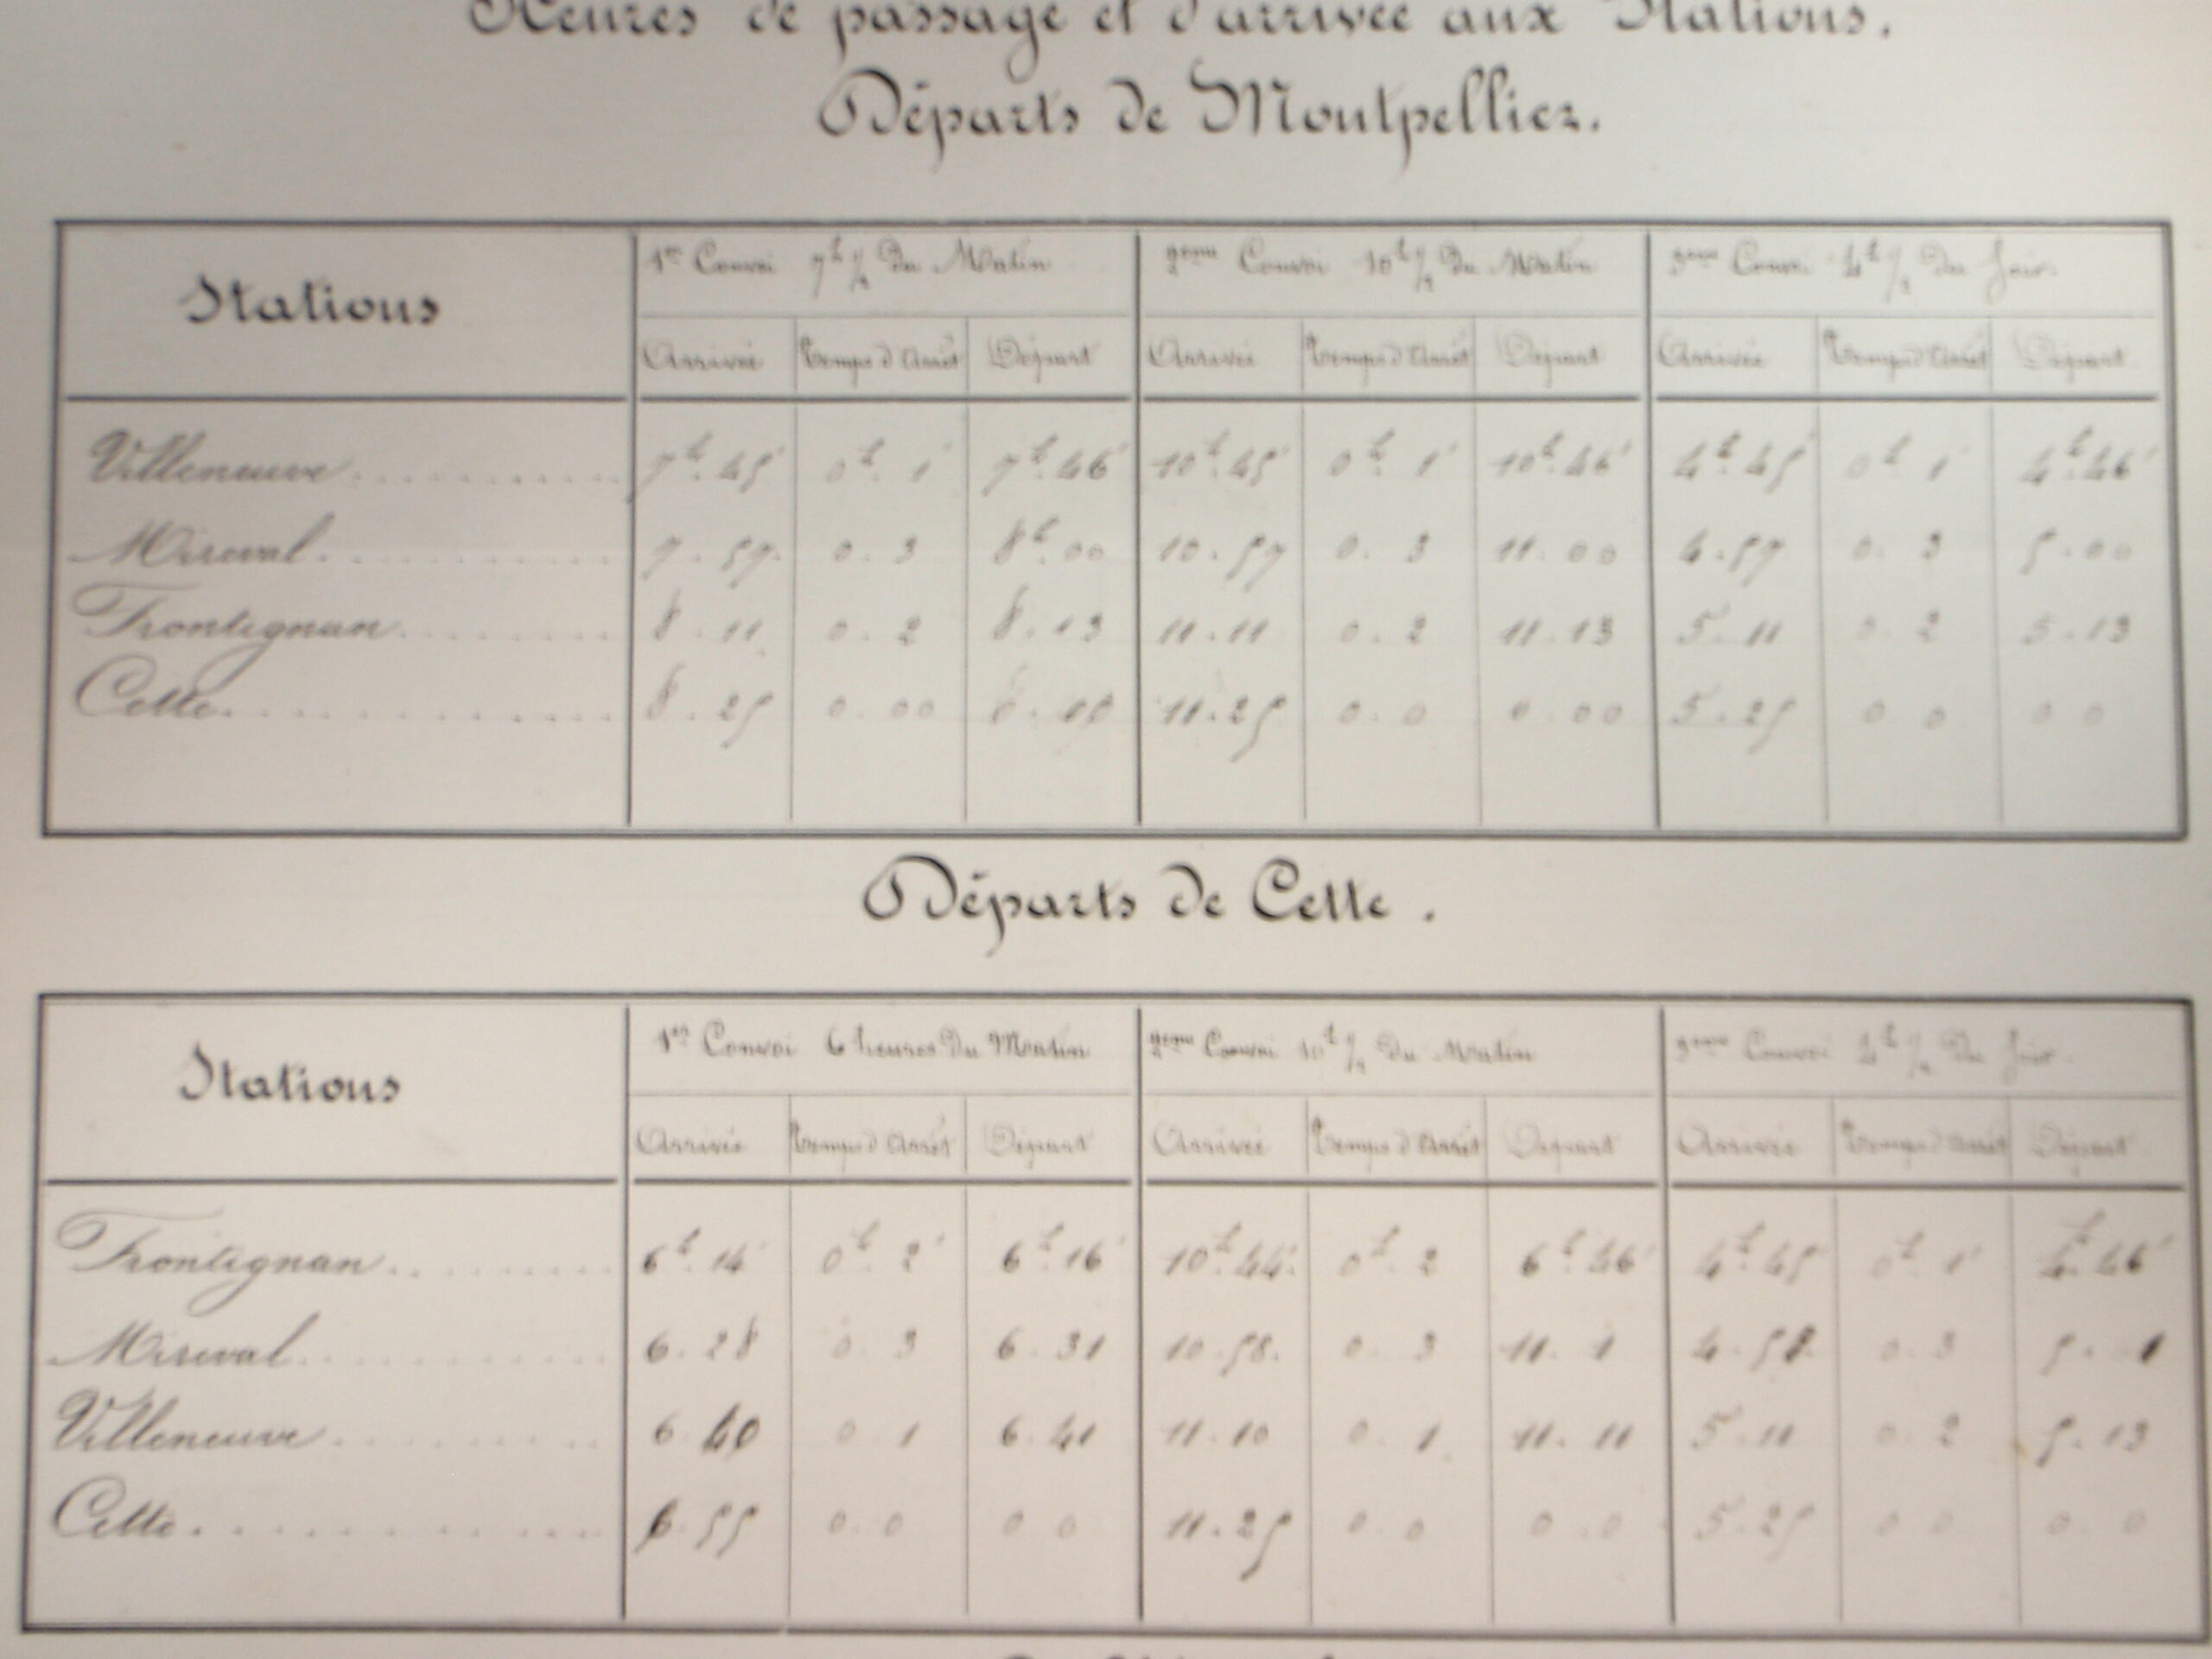 Heures de passage et d'arrivée aux Stations.
Départs de Montpellier.
Stations
1er Convoi 7h 1/2 du Matin
2ème Convoi 10h 1/2 du Matin
3ème Convoi 4h 1/2 du Soir
Arrivée Temps d'Arrêt Départ Arrivée Temps d'Arrêt Départ Arrivée Temps d'Arrêt Départ
Villeneuve 7h.45' 0h.1' 7h.46' 10h.45' 0h.1' 10h.46' 4h.45' 0h.1' 4h.46'
Mireval 7.57 0.3 8h.00 10.57 0.3 11.00 4.57 0.3 5.00
Frontignan 8.11 0.2 8.13 11.11 0.2 11.13 5.11 0.2 5.13
Cette 8.25 0.00 11.25 0.0 0.00 5.25 0 0 0 0
Départs de Cette.
Stations
1er Convoi 6 heures du Matin
2ème Convoi 10h 1/2 du Matin
3ème Convoi 4h 1/2 du Soir
Arrivée Temps d'Arrêt Départ Arrivée Temps d'Arrêt Départ Arrivée Temps d'Arrêt Départ
Frontignan 6h.14' 0h.2' 6h.16' 10h.44' 0h.2 6h.46' 4h.45 0h.1' 4h.46'
Mireval 6.28 0.3 6.31 10.58 0.3 11.1 4.58 0.3 5.1
Villeneuve 6.40 0.1 6.41 11.10 0.1 11.11 5.11 0.2 5.13
Cette 6.55 0.0 0 0 11.25 0.0 0.0 5.25 0 0 0.0